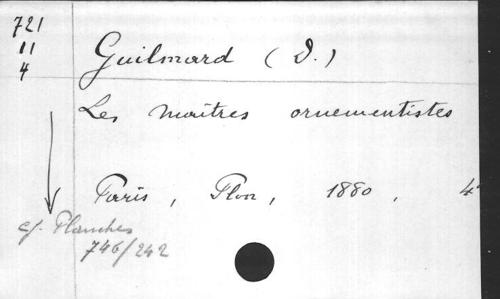 721
11
4
Guilmard (D.)
Les maîtres ornementistes
Paris, Plon, 1880, 4°
cf. Planches
746/242